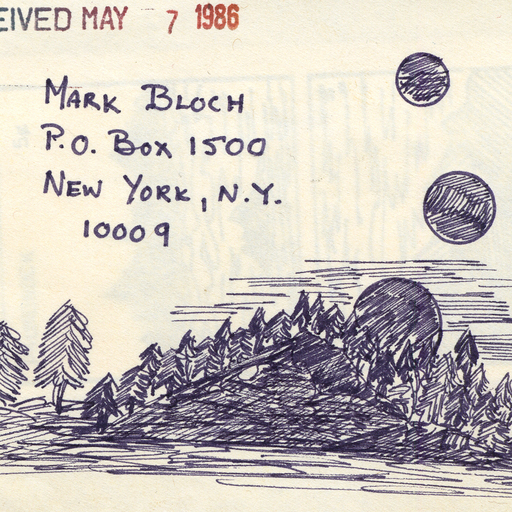 EIVED MAY 7 1986
MARK BLOCH
P.O. BOX 1500
NEW YORK, N.Y.
10009